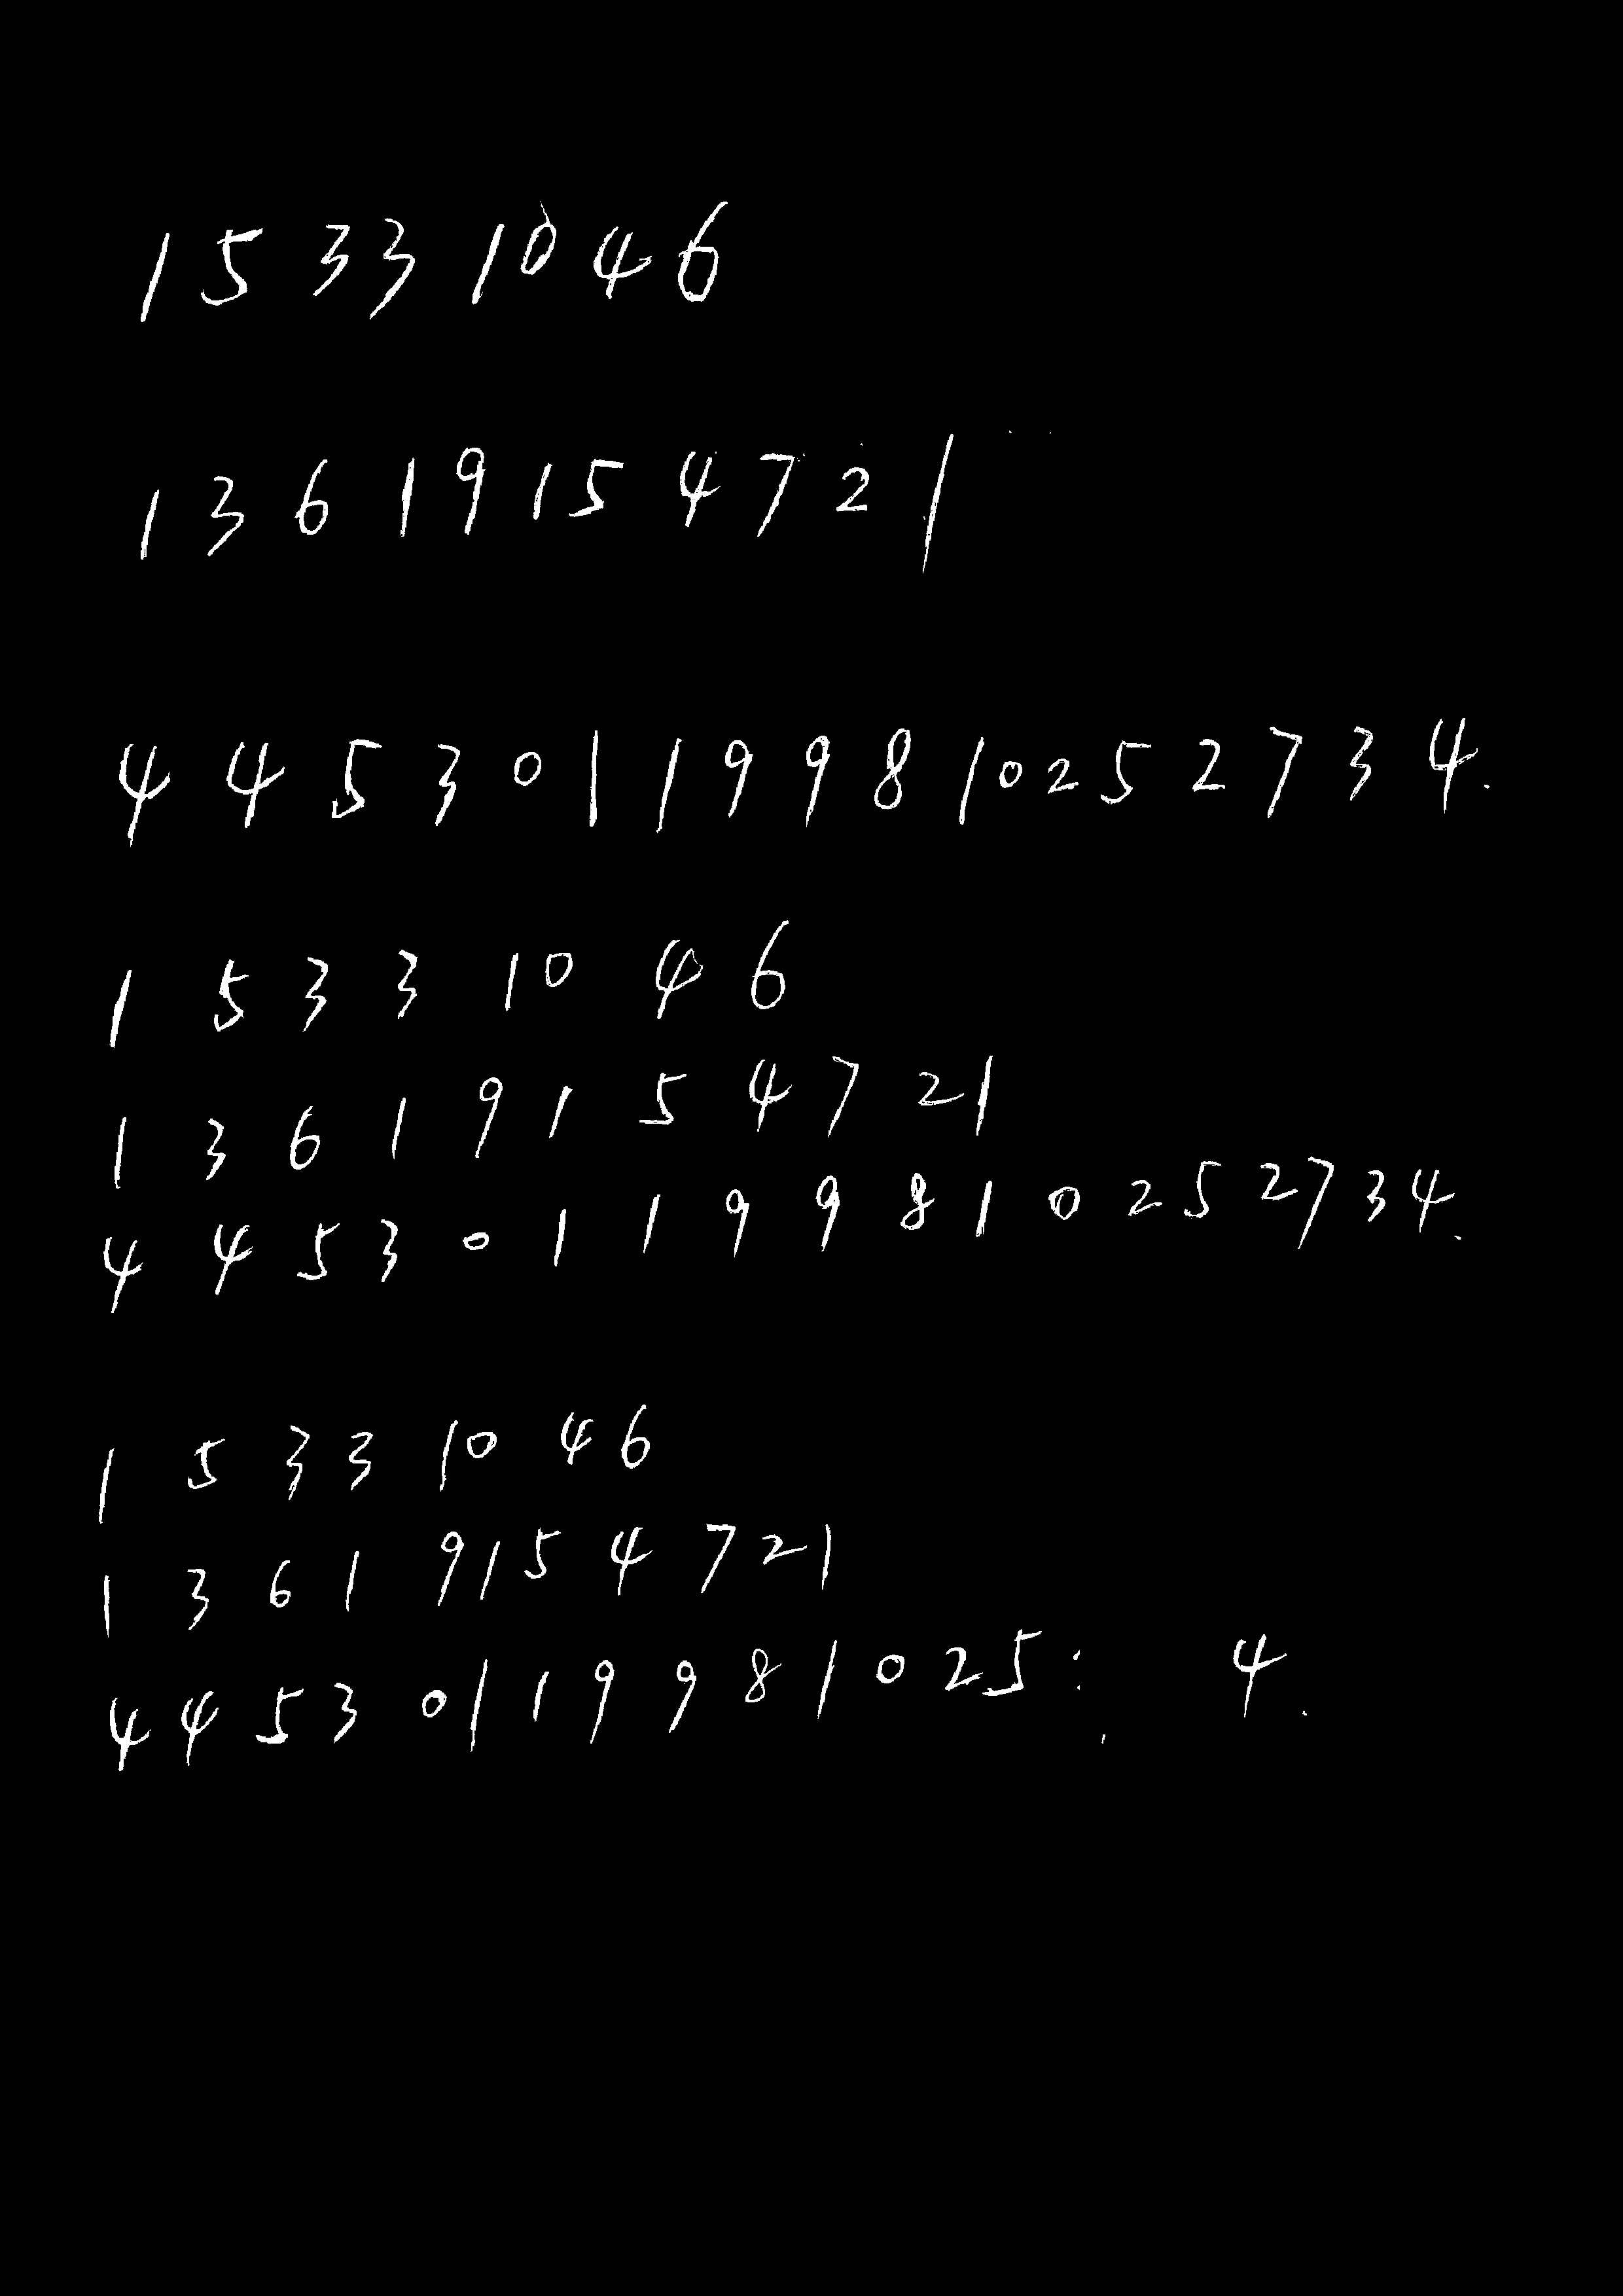 15331046
13619154721
445301199810252734.
15331046
13619154721
445301199810252734.
15331046
13619154721
44530119981025: 4.